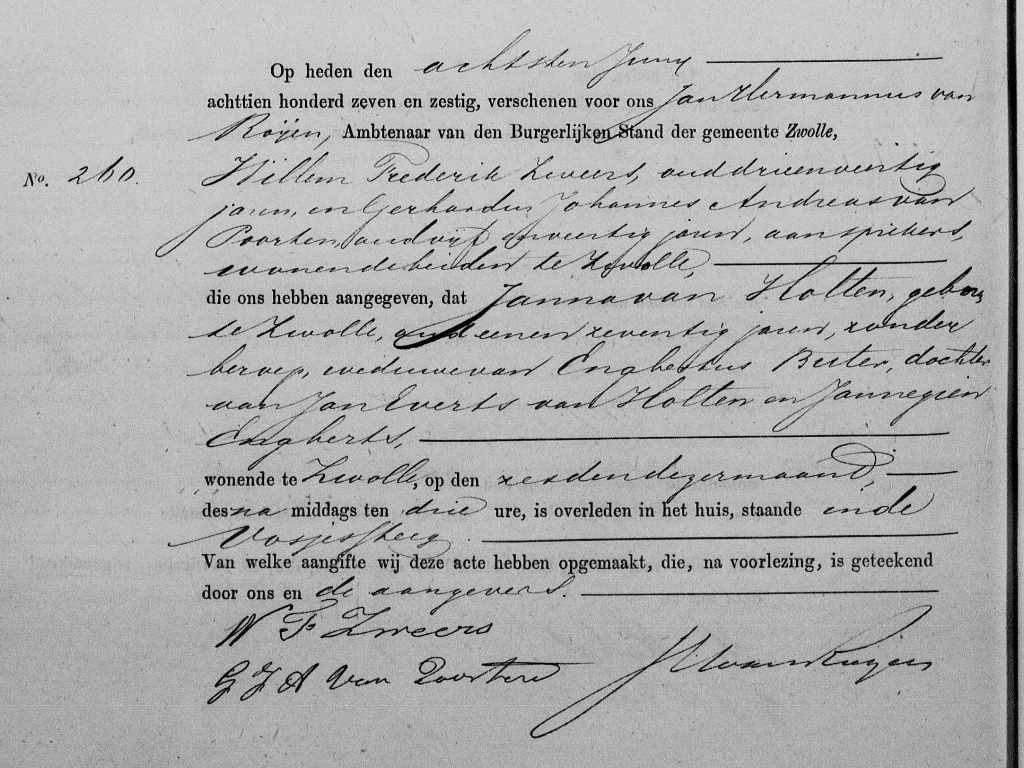 Op heden den achtsten Juny
achttien honderd zeven en zestig, verschenen voor ons Jan Hermannus van
Roijen, Ambtenaar van den Burgerlijken Stand der gemeente Zwolle,
No. 260. Willem Frederik Zweers, oud drieenveertig
jaren, en Gerhardus Johannes Andreas van
Poorten, oud vijf en veertig jaren, aansprekers,
wonende beiden te Zwolle,
die ons hebben aangegeven, dat Janna van Holten, geboren
te Zwolle, oud eenen zeventig jaren, zonder
beroep, weduwe van Engbertus Beiter, dochter
van Jan Everts van Holten en Jannegien
Engberts,
wonende te Zwolle, op den zesden dezer maand,
des na middags ten drie ure, is overleden in het huis, staande in de
Vosjessteeg.
Van welke aangifte wij deze acte hebben opgemaakt, die, na voorlezing, is geteekend
door ons en de aangevers.
W F Zweers
G J A van Poorten JHvanRoijen